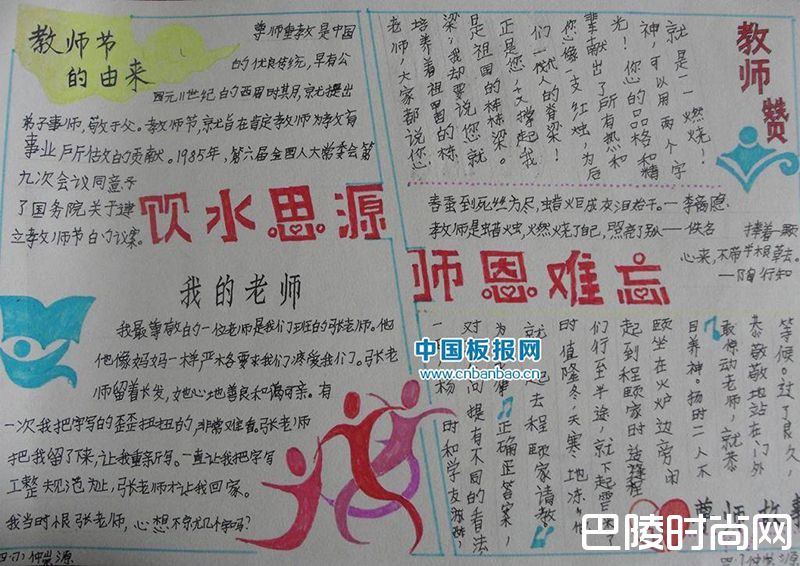 教师节
的由来
尊师重教是中国
的优良传统，早有公
四元11世纪的西周时其月，就提出
弟子事师，敬于父。教师节，就旨在肯定教师为教育
事业所做的贡献。1985年，第六届全国人大常委会第
九次会议同意
了国务院关于建
立教师节日的议案。
饮水思源
老师，大家都说您
培养着祖国的栋
梁，我却要说您就
是祖国的栋梁。
正是您，又撑起我
们一代人的脊梁！
您像一支红烛，为后
辈献出了所有热和
光！您的品格和精
神，可以用两个字
就是——燃烧！
教师赞
春蚕到死丝方尽，蜡炬成灰泪始干。—李商隐
教师是蜡烛，燃烧了自己，照亮了别人—佚名
捧着一颗
心来，不带半根草去。
—陶行知
师恩难忘
我的老师
我最尊敬的一位老师是我们班的张老师。他
他像妈妈一样严格要求我们疼爱我们。张老
师留着长发，她心地善良和蔼可亲。有
一次我把字写的歪歪扭扭的，非常难看。张老师
把我留了下来，让我重新写。一直让我把字写
工整规范为止，张老师才让我回家。
我当时恨张老师，心想不就几个字吗？
四.(7)仲崇源
中国板报网
www.cnbanbao.cn
时和学友游酢，
对问提有不同的看法
为 正确正答案，
就 起去程颐家请教
时值隆冬，天寒地冻，他
们行至半途，就下起雪来
起到程颐家时
颐坐在火炉边旁闭
目养神。扬时二人不
敢惊动老师，就恭
恭敬敬地站在门外
等候。过了良久，
尊师故事
巴陵时尚网